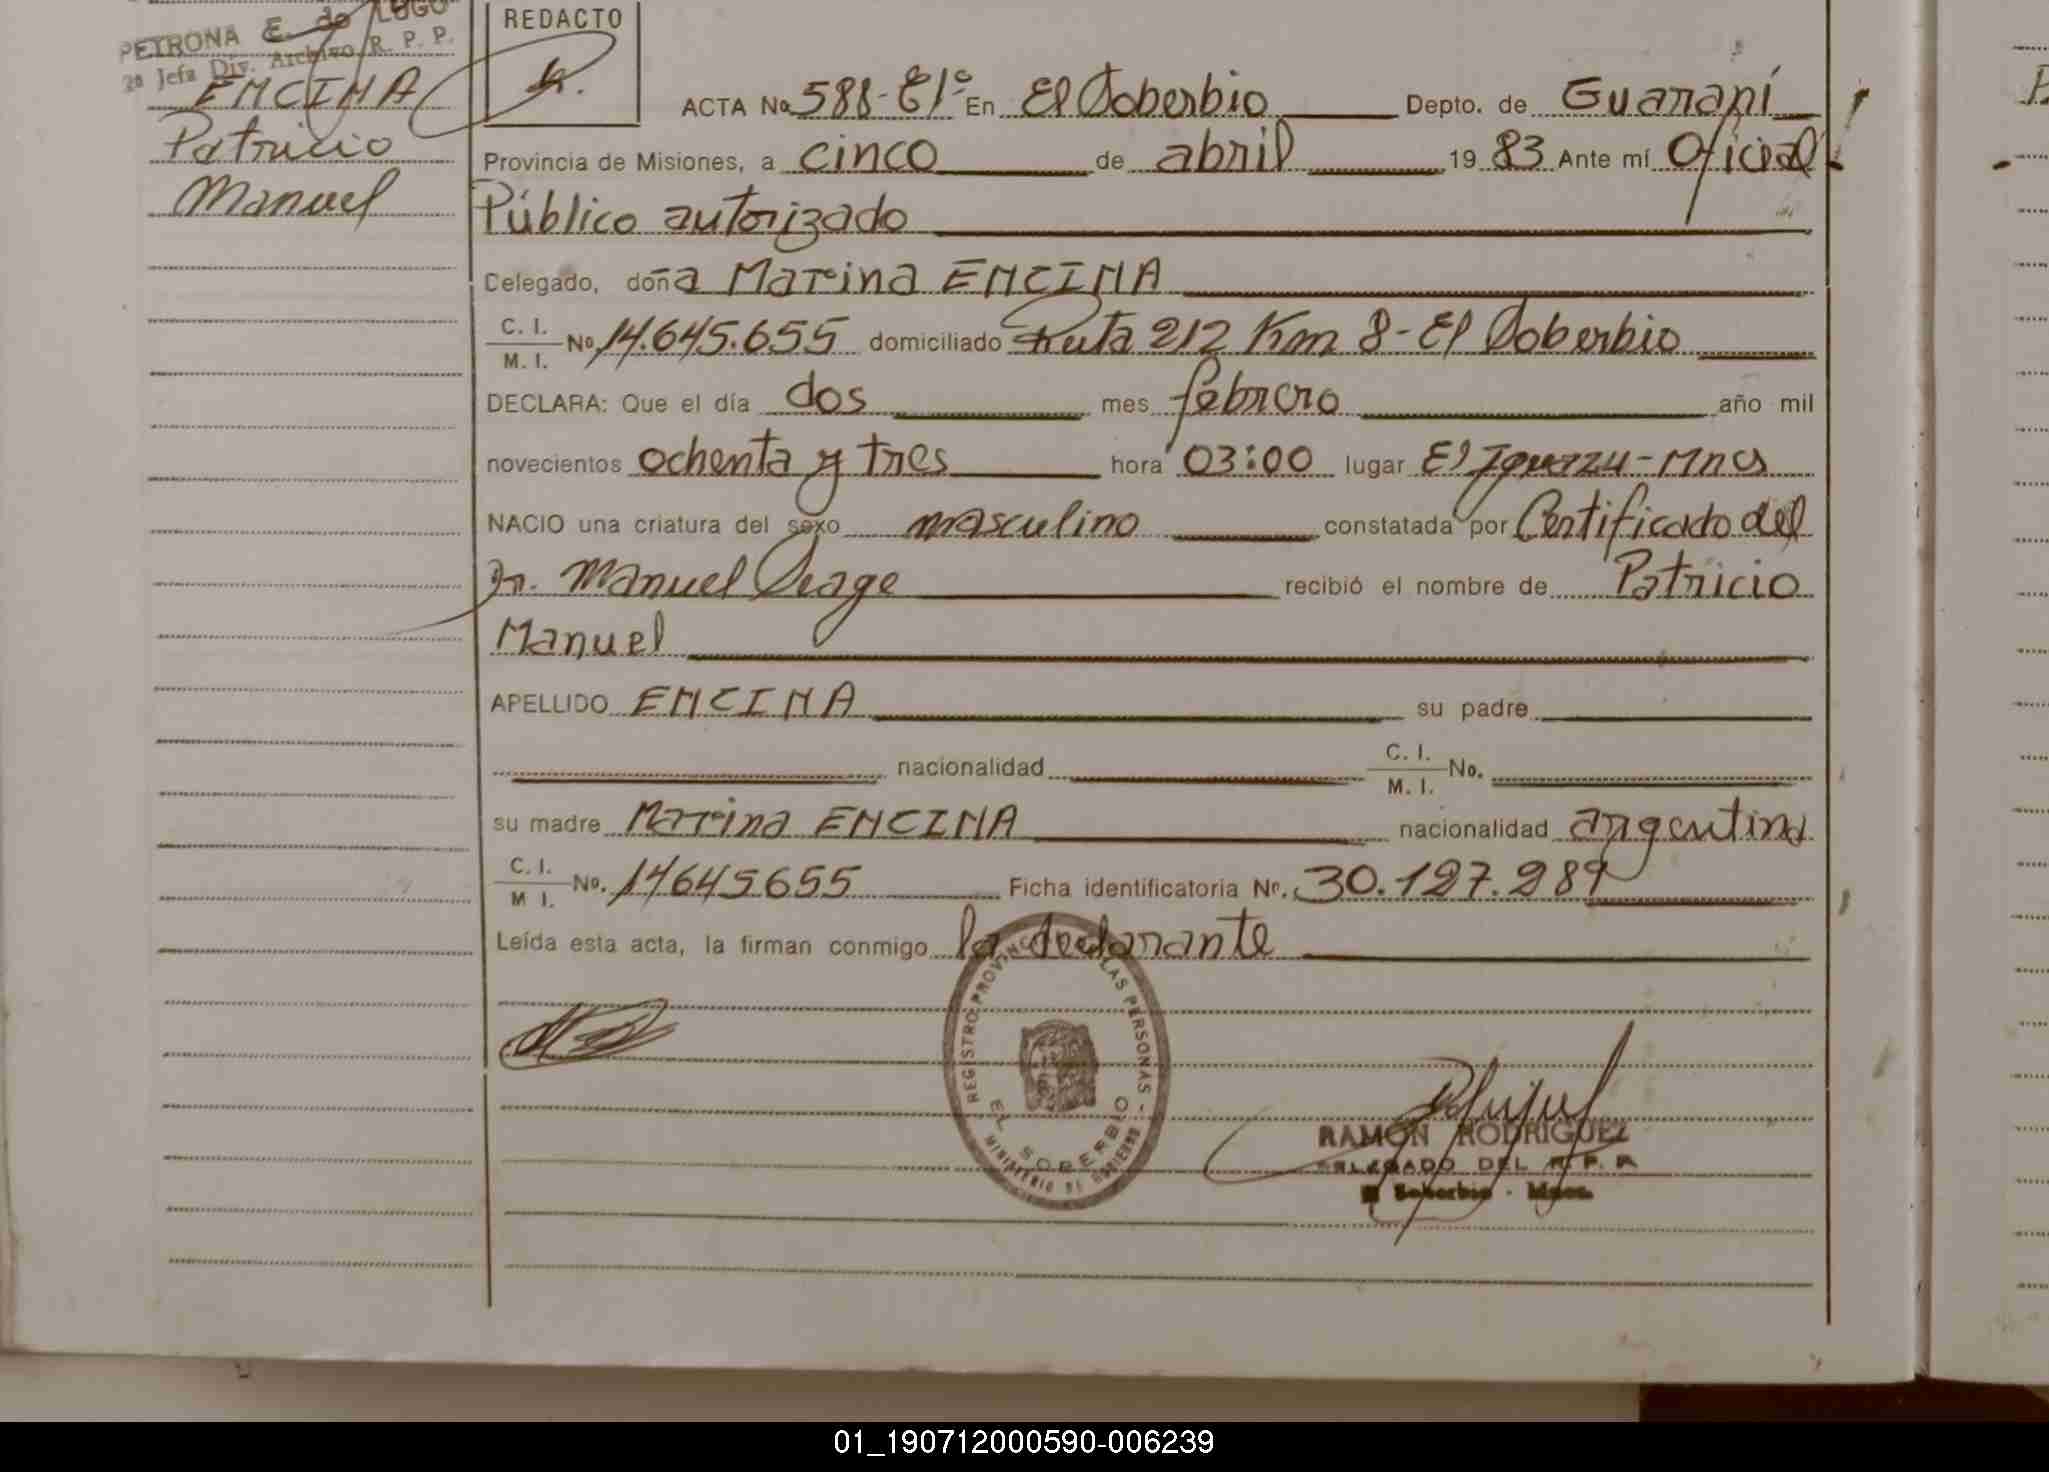 PETRONA E. de LUGO
2a Jefa Div. Archivo R. P. P.
ENCINA
Patricio
Manuel
REDACTO
ACTA No 588- En El Soberbio Depto. de Guaraní
Provincia de Misiones, a cinco de abril 19 83 Ante mí Oficial
Público autorizado
Celegado, doña Marina ENCINA
C. I.
M. I. No 14.645.655 domiciliado Ruta 212 Km 8-El Soberbio
DECLARA: Que el día dos mes febrero año mil
novecientos ochenta y tres hora 03:00 lugar El Iguazu-Mnes
NACIO una criatura del sexo masculino constatada por Certificado del
Dr. Manuel Seage recibió el nombre de Patricio
Manuel
APELLIDO ENCINA su padre
nacionalidad C. I.
M. I. No.
su madre Marina ENCINA nacionalidad argentina
C. I.
M I. No. 14645655 Ficha identificatoria No. 30.127.289
Leída esta acta, la firman conmigo la declarante
REGISTRO PROVINCIAL DE LAS PERSONAS -
EL SOBERBIO
MINISTERIO DE GOBIERNO
RAMON RODRIGUEZ
DELEGADO DEL R. P. P.
El Soberbio - Mnes.
01_190712000590-006239